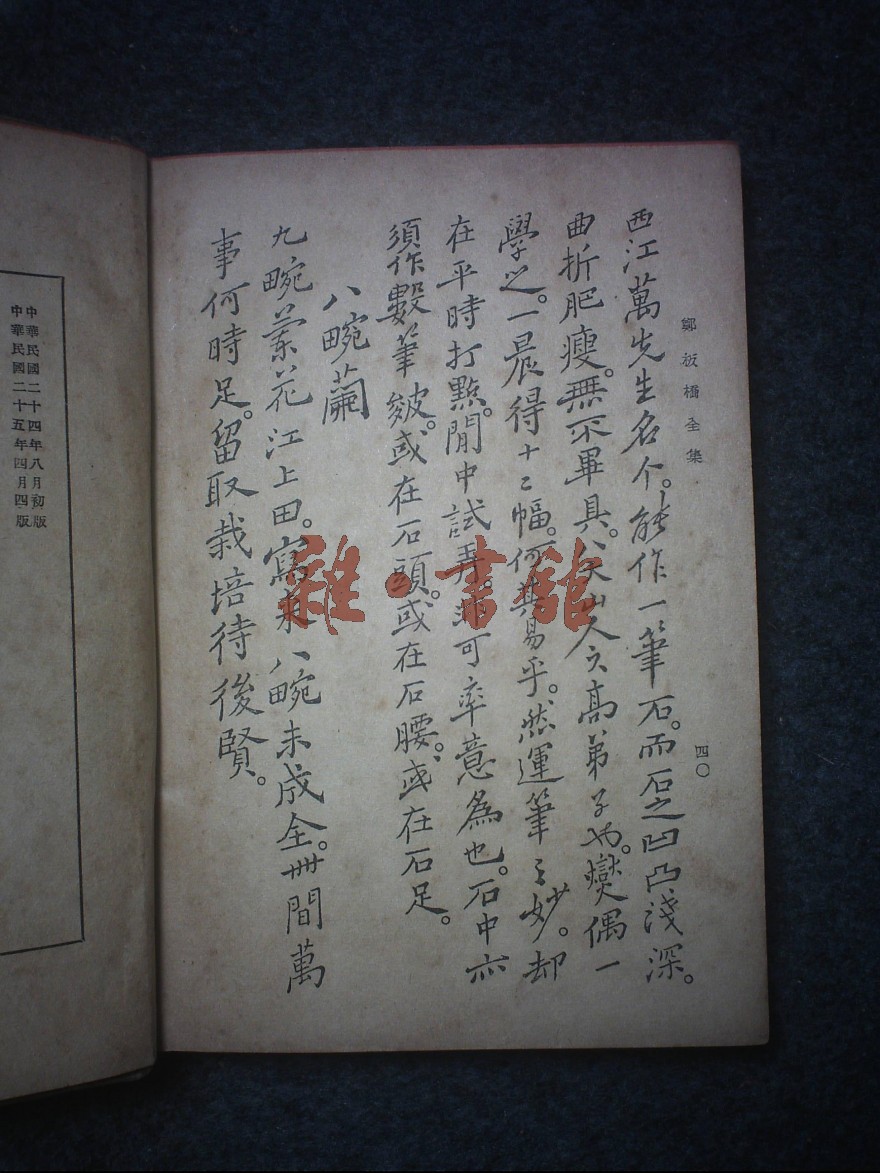 鄭板橋全集
四〇
西江萬先生名个。能作一筆石。而石之凹凸淺深。
曲折肥瘦。無不畢具。八大山人之高弟子也。燮偶一
學之。一晨得十二幅。何其易乎。然運筆之妙。却
在平時打點。閒中試弄。非可率意為也。石中亦
須作數筆皴。或在石頭。或在石腰。或在石足。
八畹蘭
九畹蘭花江上田。寫來八畹未成全。世間萬
事何時足。留取栽培待後賢。
中華民國二十四年八月初版
中華民國二十五年四月四版
雜·書館